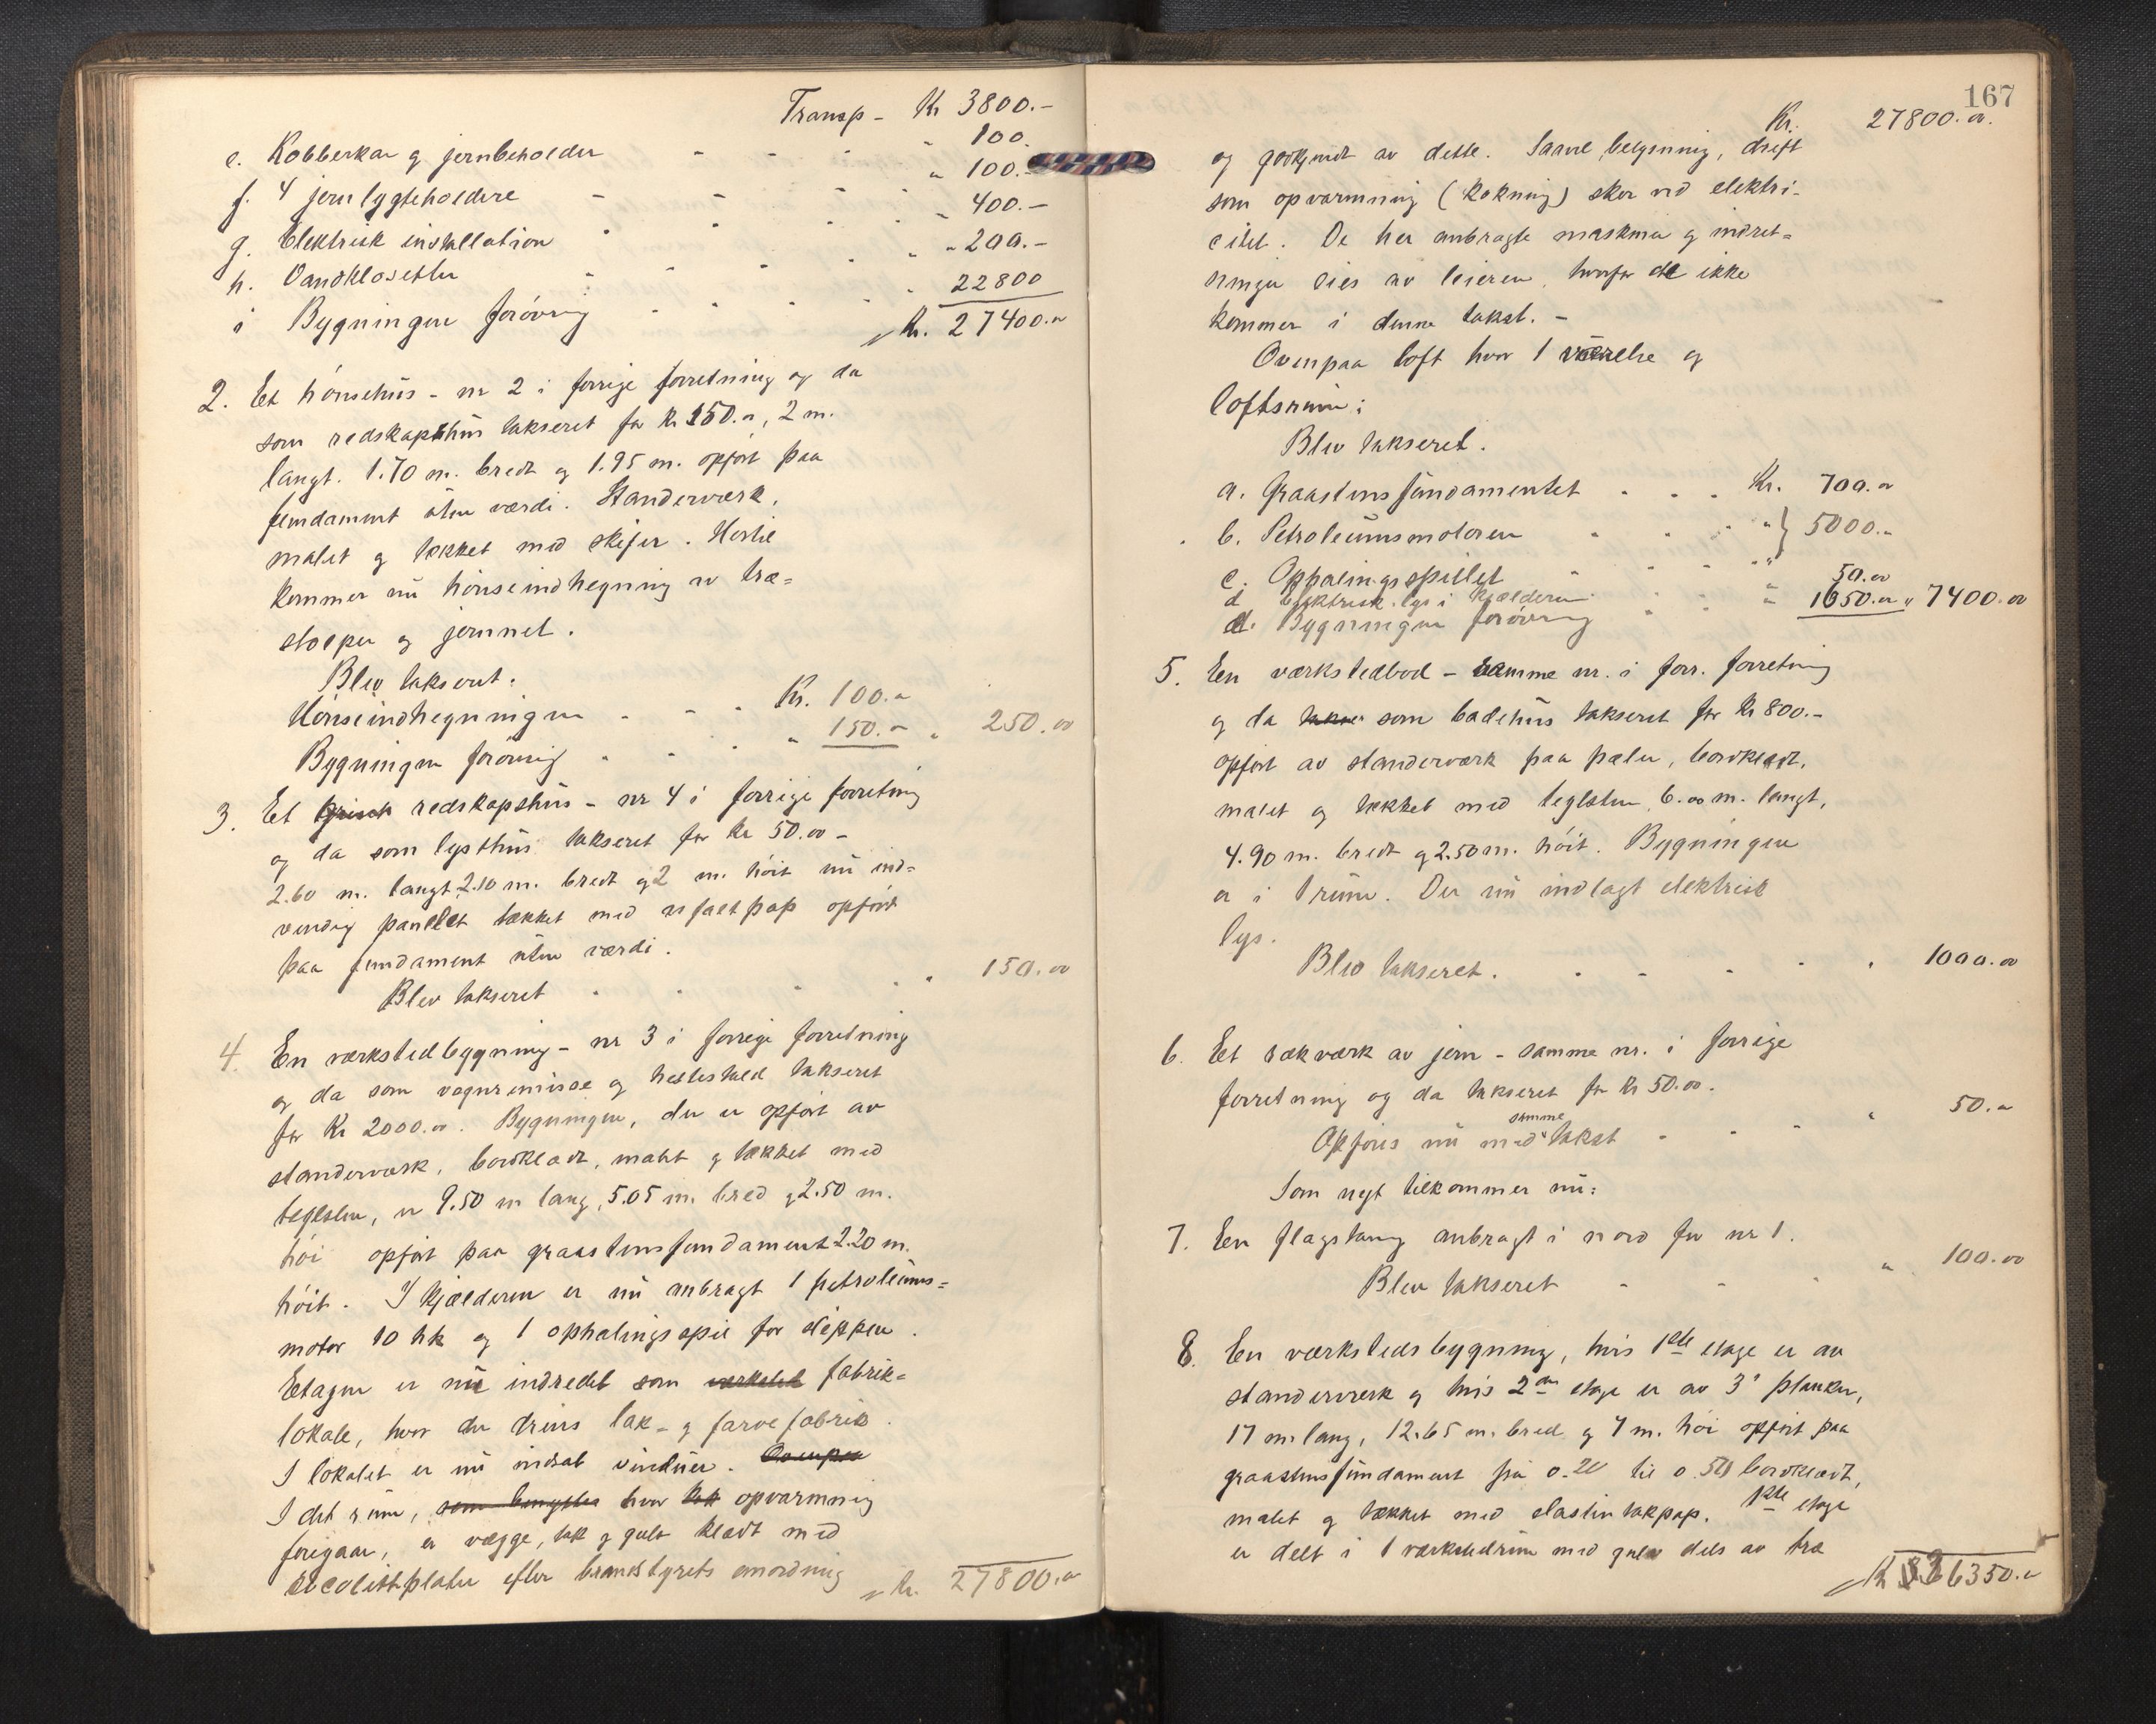 Transp - Kr 3800.-
e. Kobberkar og jernbeholder - - - " 100.
f. 4 jern lygteholdere - - - " 100.-
g. Elektrisk installation - - - " 400.-
h. Vandklosetter - - - " 200.-
i Bygningen forøvrig - - - " 22800
Kr. 27400.00
2. Et hønsehus - nr 2 i forrige forretning og da
som redskapshus takseret for kr 150.00, 2 m.
langt. 1.70 m. bredt og 1.95 m. opført paa
fundament uten værdi. Standerverk,
malet og tækket med skifer. Hertil
kommer nu hønseindhegning av træ=
stolper og jernnet.
Blev takseret:
Hønseindhegningen - - - Kr. 100.00
Bygningen forøvrig - - - " 150.- " 250.00
3. Et redskapshus - nr 4 i forrige forretning
og da som lysthus takseret for kr 50.00 -
2.60 m. langt 2.10 m. bredt og 2 m. høit nu ind=
vendig panelet tækket med asfaltpap opført
paa fundament uten værdi.
Blev takseret - - - " 150.00
4. En værkstedbygning - nr 3 i forrige forretning
og da som vognremisse og hestestald takseret
for Kr 2000.00. Bygningen, der er opført av
standerværk, bordklædt, malet og tækket med
teglsten, er 9.50 m lang, 5.05 m. bred og 2.50 m.
høi opført paa graastensfundament 2.20 m.
høit. I kjælderen er nu anbragt 1 petroleums=
motor 10 hk og 1 ophalingsspil for slippen.
Etagen er nu indredet som værksted fabrik=
lokale, hvor der drives lak- og farvefabrik.
I lokalet er nu indsat vinduer. Ovenpaa
I det rum, som benyttes hvor lak opvarmning
foregaar, er vægge, tak og gulv klædt med
plater efter brandstyrets anordning
Kr. 27800.00
167
Kr. 27800.00.
og godkjendt av dette. Saavel belysning, drift
som opvarmning (kokning) sker ved elektri-
citet. De her anbragte maskiner og indret=
ninger eies av leieren, hvorfor de ikke
kommer i denne takst. -
Ovenpaa loft hvor 1 værelse og
loftsrum:
Blev takseret.
a. Graastensfundamentet - - - Kr. 700.00
b. Petroleumsmotoren - - - " } 5000.-
c. Ophalingsspillet - - - "
d Elektrisk lys i kjælderen - - - " 50.00
d. Bygningen forøvrig - - - " 1650.00 " 7400.00
5. En værkstedbod - samme nr. i forr. forretning
og da som badehus takseret for Kr 800.-
opført av standerværk paa pæler, bordklædt,
malet og tækket med teglsten, 6.00 m. langt,
4.90 m. bredt og 2.50 m. høit. Bygningen
er i 1 rum. Der nu indlagt elektrisk
lys.
Blev takseret. - - - " 1000.00
6. Et rækværk av jern - samme nr. i forrige
forretning og da takseret for Kr 50.00.
Opføres nu med samme takst - - - " 50.00
Som nyt tilkommer nu:
7. En flagstang anbragt i nord for nr 1.
Blev takseret - - - " 100.00
8. En værkstedsbygning, hvis 1ste etage er av
standerværk og hvis 2den etage er av 3" planker,
17 m. lang, 12.65 m. bred og 7 m. høi opført paa
graastensfundament fra 0.20 til 0.50 bordklædt,
malet og tækket med elastin takpap. 1ste etage
er delt i 1 værkstedrum med gulv dels av træ
Kr 36350.00